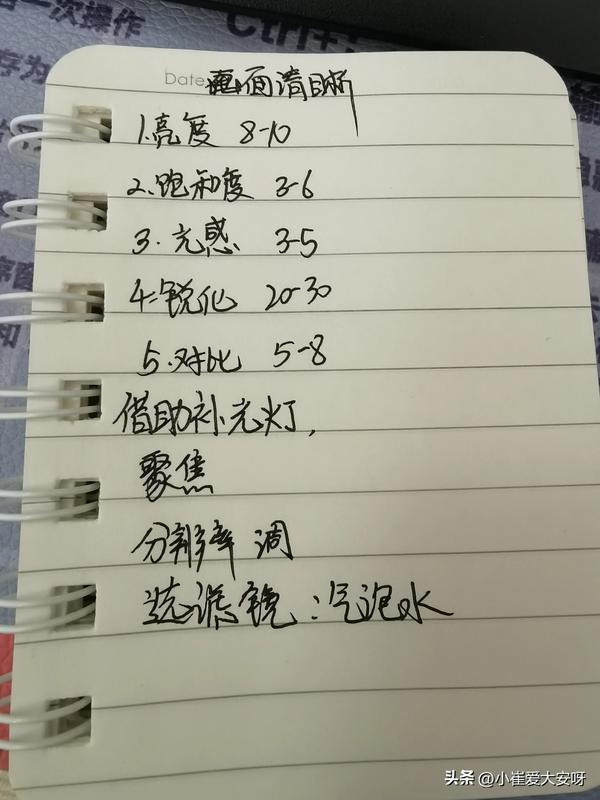 一次操作
Ctrl+
存为
Date 画面清晰
1.亮度 8-10
2.饱和度 3-6
3.光感 3-5
4.锐化 20-30
5.对比 5-8
借助补光灯,
聚焦
分辨率 调
选滤镜:汽泡水
和
头条 @小崔爱大安呀